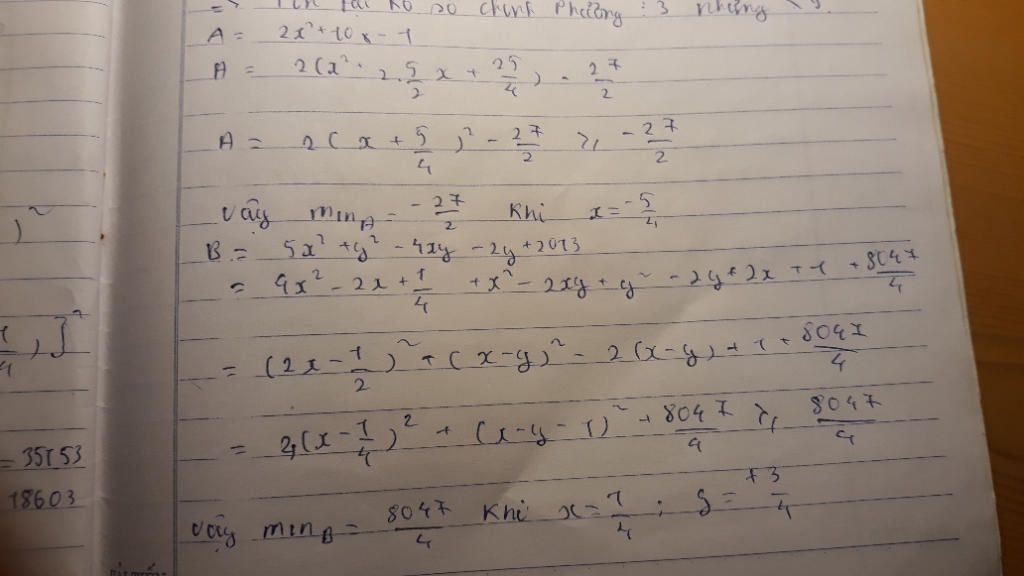 => Tồn tại Ko số chính phương : 3 nhưng
A = 2x² + 10x - 1
A = 2(x² + 2.5/2 x + 25/4) - 27/2
A = 2(x + 5/4)² - 27/2 ≥ -27/2
Vậy min_A = -27/2 Khi x = -5/4
B = 5x² + y² - 4xy - 2y + 2013
= 4x² - 2x + 1/4 + x² - 2xy + y² - 2y + 2x + 1 + 8047/4
= (2x - 1/2)² + (x - y)² - 2(x - y) + 1 + 8047/4
= 4(x - 1/4)² + (x - y - 1)² + 8047/4 ≥ 8047/4
Vậy min_B = 8047/4 Khi x = 1/4 ; y = +3/4
)²
)]²
= 35153
18603